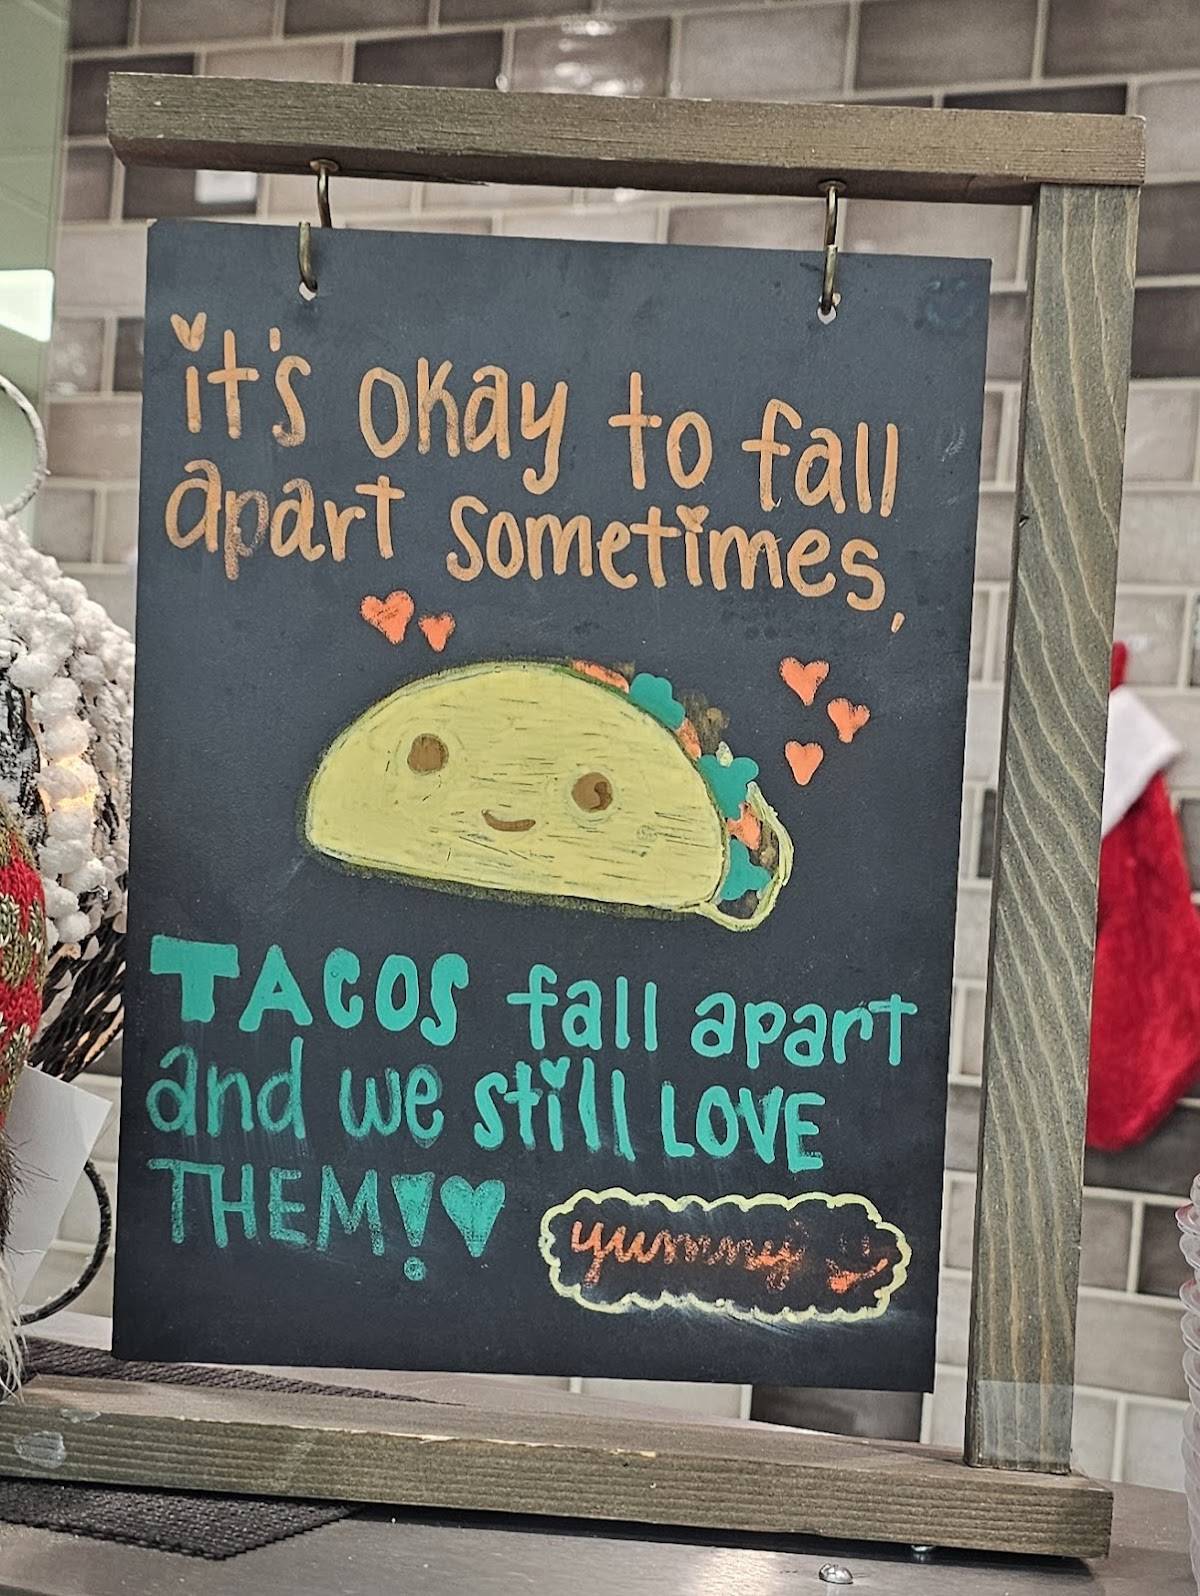 it's okay to fall
apart sometimes,
TACOS fall apart
and we still LOVE
THEM!
yummy